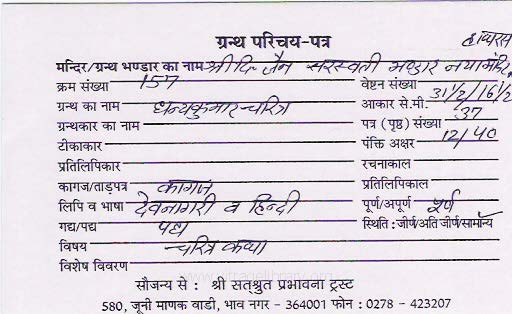 ग्रन्थ परिचय-पत्र हाथरस
मन्दिर/ग्रन्थ भण्डार का नाम श्री दि. जैन सरस्वती भण्डार नया मंदिर,
क्रम संख्या 157 वेष्टन संख्या
ग्रन्थ का नाम धन्यकुमार चरित्र आकार से.मी. 31 1/2 / 16 1/2
ग्रन्थकार का नाम पत्र (पृष्ठ) संख्या 37
टीकाकार पंक्ति अक्षर 12/40
प्रतिलिपिकार रचनाकाल
कागज/ताड़पत्र कागज प्रतिलिपिकाल
लिपि व भाषा देवनागरी व हिन्दी पूर्ण/अपूर्ण पूर्ण
गद्य/पद्य पद्य स्थिति : जीर्ण/अति जीर्ण/सामान्य
विषय चरित्र कथा
विशेष विवरण
सौजन्य से : श्री सत्श्रुत प्रभावना ट्रस्ट
580, जूनी माणक वाडी, भाव नगर - 364001 फोन : 0278 - 423207